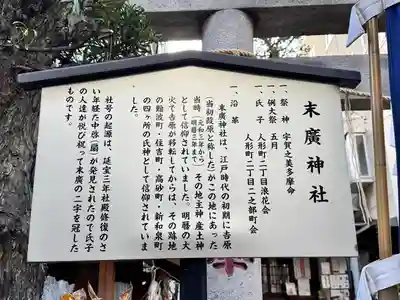 末廣神社
一、祭神 宇賀之美多摩命
一、例大祭 五月
一、氏子 人形町二丁目浪花会
人形町二丁目二之部町会
一、沿革
末廣神社は、江戸時代の初期に吉原
(当初葭原と称した)がこの地にあった
当時(元和三年から明暦三年まで)その地主神産土神
として信仰されていました。明暦の大
火で吉原が移転してからは、その跡地
の難波町・住吉町・高砂町・新和泉町
の四ヶ所の氏神として信仰されていま
した。
社号の起源は、延宝三年社殿修復のさ
い年経た中啓(扇)が発見されたので氏子
の人達が悦び祝って末廣の二字を冠した
ものです。